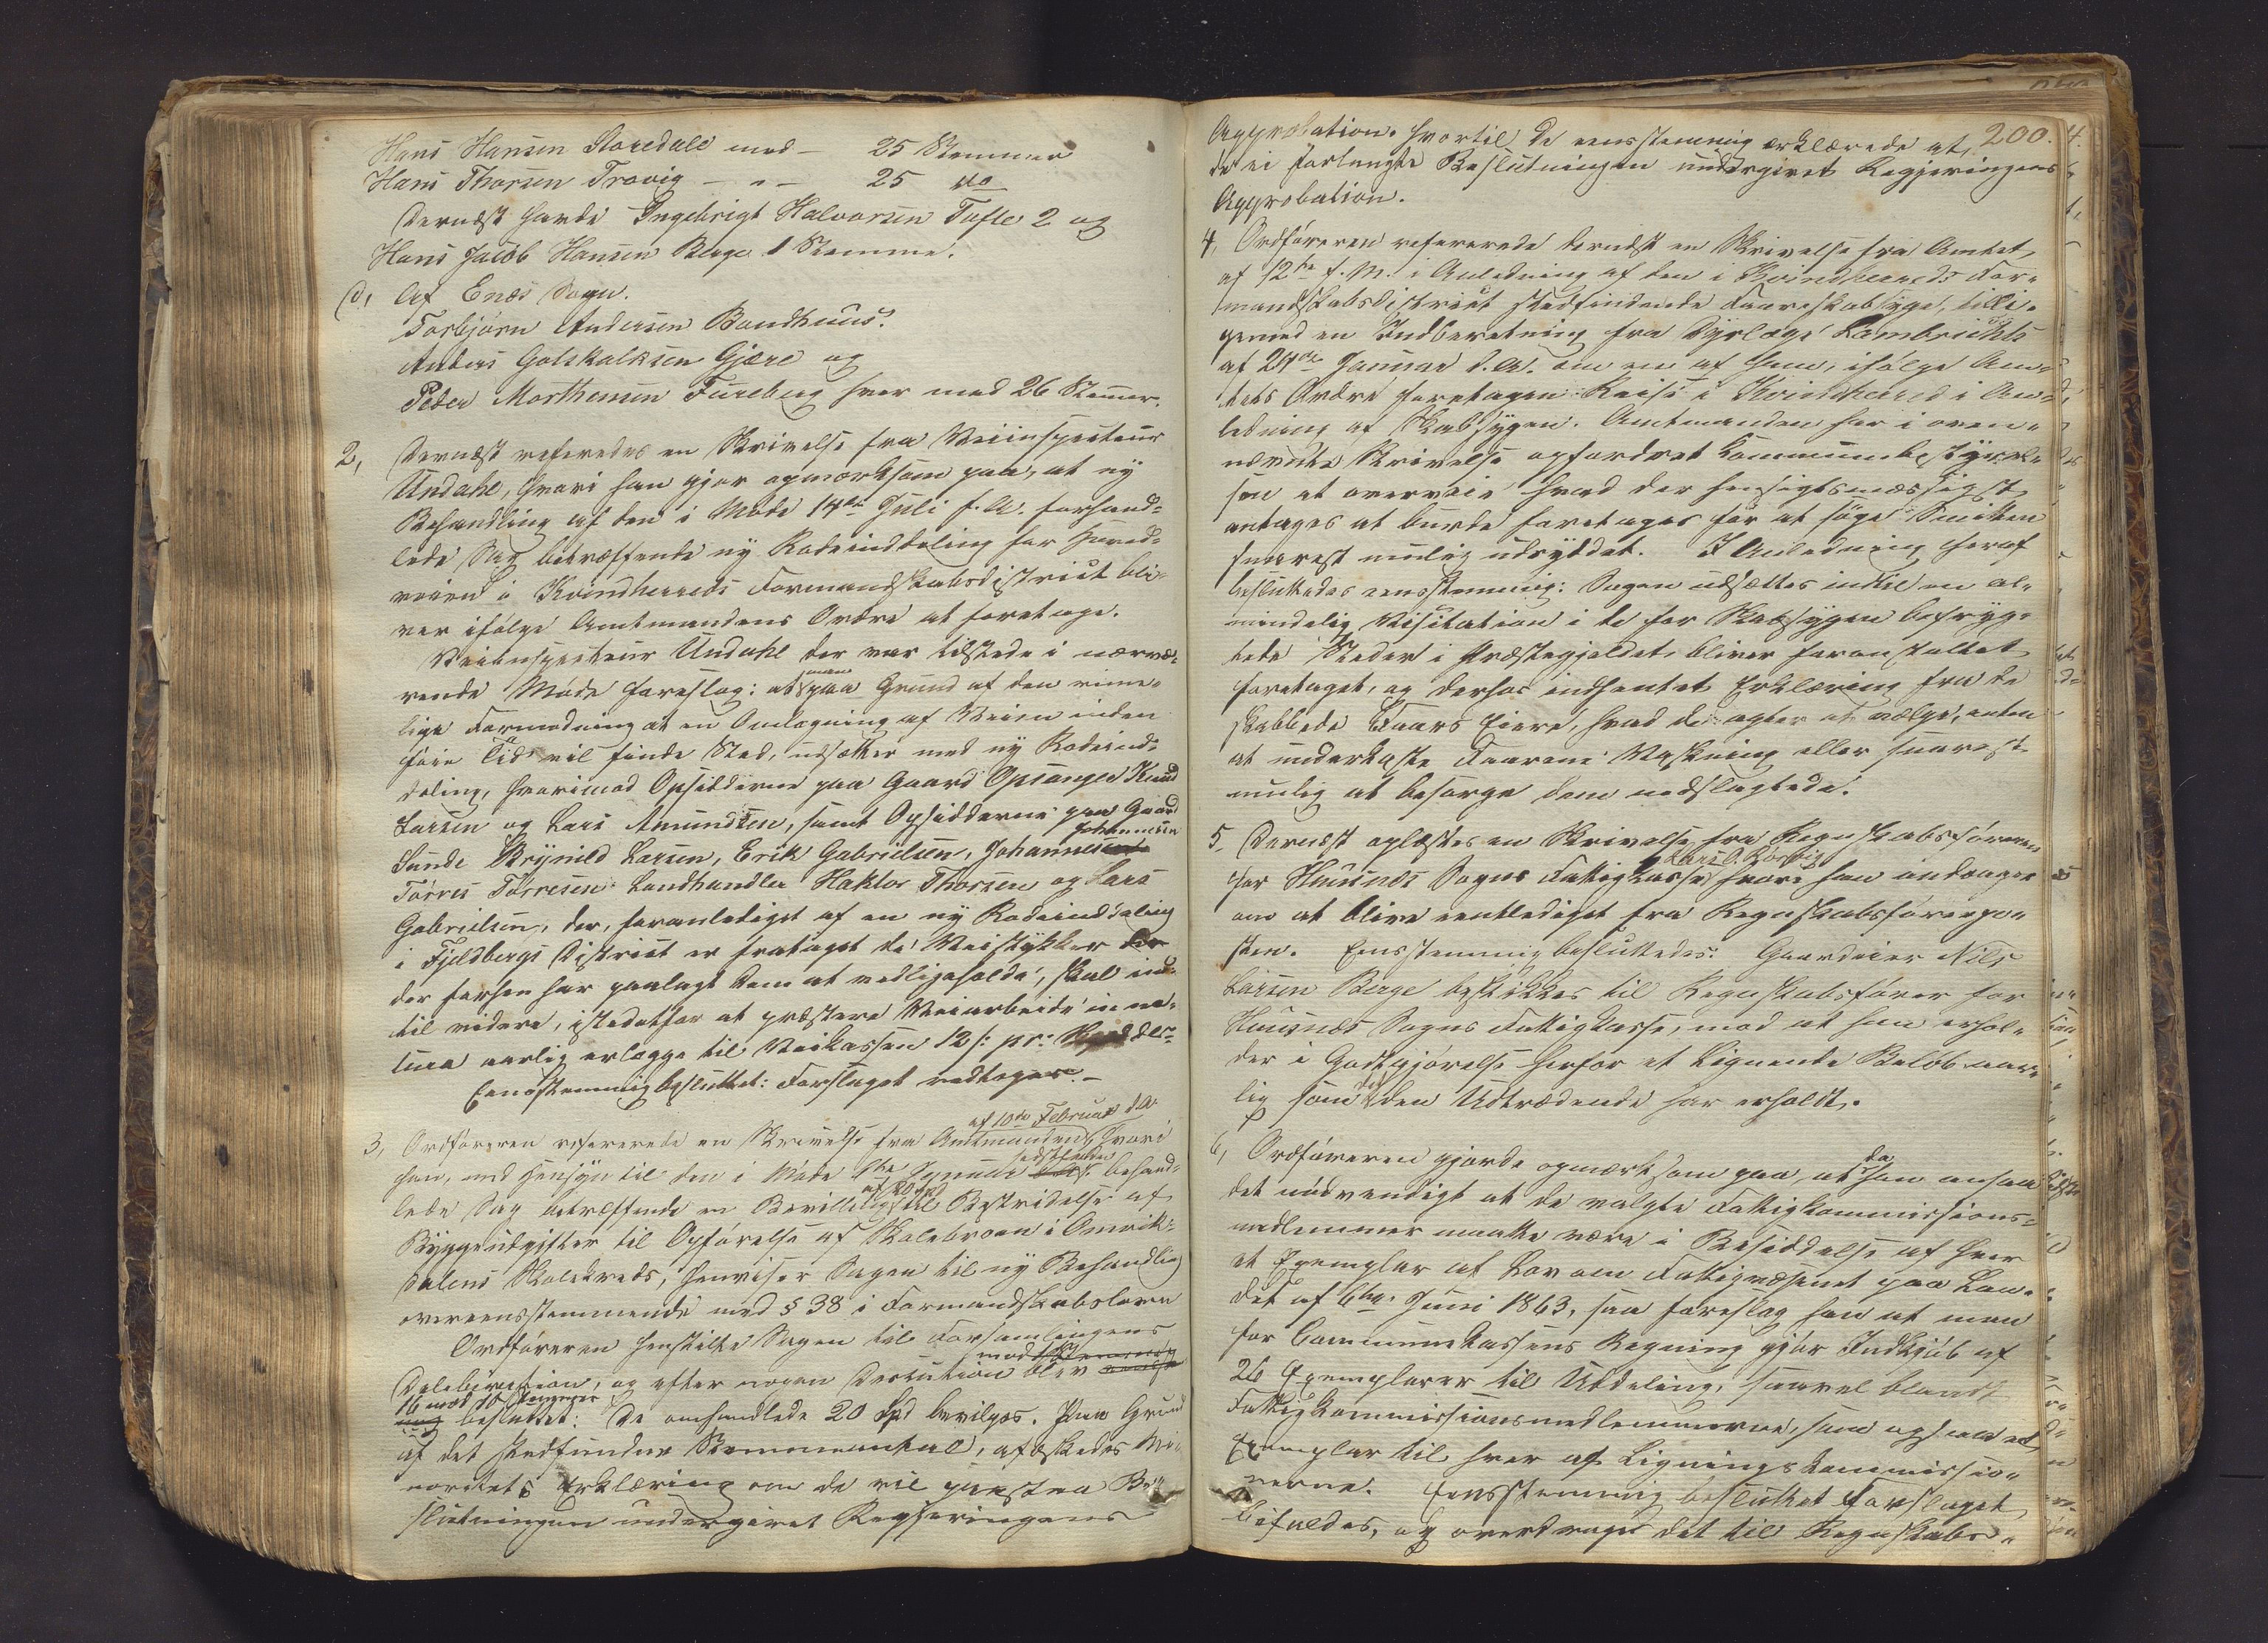 Hans Hansen Storedale med — 25 Stemmer
Hans Thorsen Trovig — " — 25 do
Dernæst havde Ingebrigt Halvorsen Tofte 2 og
Hans Jacob Hansen Berge 1 Stemme.
d, Af Enæs Sogn.
Torbjørn Andersen Bondhuus.
Anders Gotskalksen Gjære og
Peder Morthensen Fureberg hver med 26 Stemmer.
2, Dernæst refereredes en Skrivelse fra Veiinspecteur
Undahl, hvori han gjør opmærksom paa, at ny
Behandling af den i Møde 14de Juli f. A. forhand-
lede Sag betræffende ny Rodeinddeling for Hoved-
veien i Kvindherreds Formandskabsdistrict bli-
ver ifølge Amtmandens Ordre at foretage.
Veiinspecteur Undahl der var tilstede i nærvæ-
rende Møde foreslog: at man paa Grund af den rime-
lige Formodning at en Omlægning af Veien inden
føie Tid vil finde Sted, udsætter med ny Rodeind-
deling, hvorimod Opsidderne paa Gaard Opsanger Knud
Larsen og Lars Amundsen, samt Opsidderne paa Gaard
Sunde Brynild Larsen, Erik Gabrielsen, Johannes Johannesen
Tørres Tørresen Landhandler Haktor Thorsen og Lars
Gabrielsen, der, foranlediget af en ny Rodeinddeling
i Fjeldbergs District er frataget de Veistykker der
der førhen har paalagt dem at vedligeholde, skal ind-
til videre, istedetfor at præstere Veiarbeide in na-
tura aarlig erlægge til Veikassen 12 s: pr:
Eenstemmig besluttet: Forslaget vedtages. —
3, Ordføreren refererede en Skrivelse fra Amtmanden af 10de Februar d. A. hvori
han, med Hensyn til den i Møde Januar sidstleden behand-
lede Sag betræffende en Bevilling af 20 Spd til Bestridelse af
Byggeudgifter til Opførelse af Skolebroen i Omvik-
dalens Skolekreds, henviser Sagen til ny Behandling
overeensstemmende med § 38 i Formandskabsloven
Ordføreren henstilte Sagen til Forsamlingens
Deleberation, og efter nogen Descution blev
16 mod 10 Stemmer besluttet: De omhandlede 20 Spd bevilges. Paa Grund
af det stedfundne Stemmeantal, afæskedes Mi-
noritets Erklæring om de vil paastaa Be-
slutningen undergivet Regjeringens
200.
Approbation. Hvortil de eensstemmig erklærede at
de ei forlangte Beslutningen undergivet Regjeringens
Approbation.
4, Ordføreren refererede dernæst en Skrivelse fra Amtet
af 12te f. M. i Anledning af den i Kvindherreds For-
mandskabsdistrict stedfindende Faareskabsyge, tilli-
gemed en Indberetning fra Dyrlæge Lambrichts
af 24de Januar d. A. om en af ham, ifølge Am-
tets Ordre foretagen Reise i Kvindherred i An-
ledning af Skabsygen. Amtmanden har i oven-
nævnte Skrivelse opfordret Kommunebestyrel-
sen at overveie hvad der hensigtsmæssigst
antages at burde foretages for at søge Smitten
snarest mulig udryddet. I Anledning heraf
besluttedes eensstemmig: Sagen udsættes indtil en al-
mindelig Visitation i de for Skabsygen befryg-
tede Steder i Præstegjeldet bliver foranstaltet
foretaget, og derhos indhentet Erklæring fra de
skabbede Faars Eiere, hvad de agter at vælge, enten
at underkaste Faarene Vaskning eller snarest
mulig at besørge dem nedslagtede.
5, Dernæst oplæstes en Skrivelse fra Regnskabsføreren
for Huusnæs Sogns Fattigkasse Lars O. Børvig hvori han andrager
om at blive entlediget fra Regnskabsførerpo-
sten. Eensstemmig besluttedes: Gaardeier Nils
Larsen Berge beskikkes til Regnskabsfører for
Huusnæs Sogns Fattigkasse, mod at han erhol-
der i Godtgjørelse herfor et lignende Beløb aar-
lig som den Udtrædende har erholdt.
6, Ordføreren gjorde opmærksom paa, at da han ansaa
det nødvendigt at de valgte Fattigkommissions-
medlemmer maatte være i Besiddelse af hver
et Exemplar af Lov om Fattigvæsenet paa Lan-
det af 6te Juni 1863, saa foreslog han at man
for Communekassens Regning gjør Indkjøb af
26 Exemplarer til Uddeling, saavel blandt
Fattigkommissionsmedlemmerne, som ogsaa et
Exemplar til hver af Ligningskommissio-
nerne. Eensstemmig besluttet Forslaget
bifaldes, og overdrages det til Regnskabs-